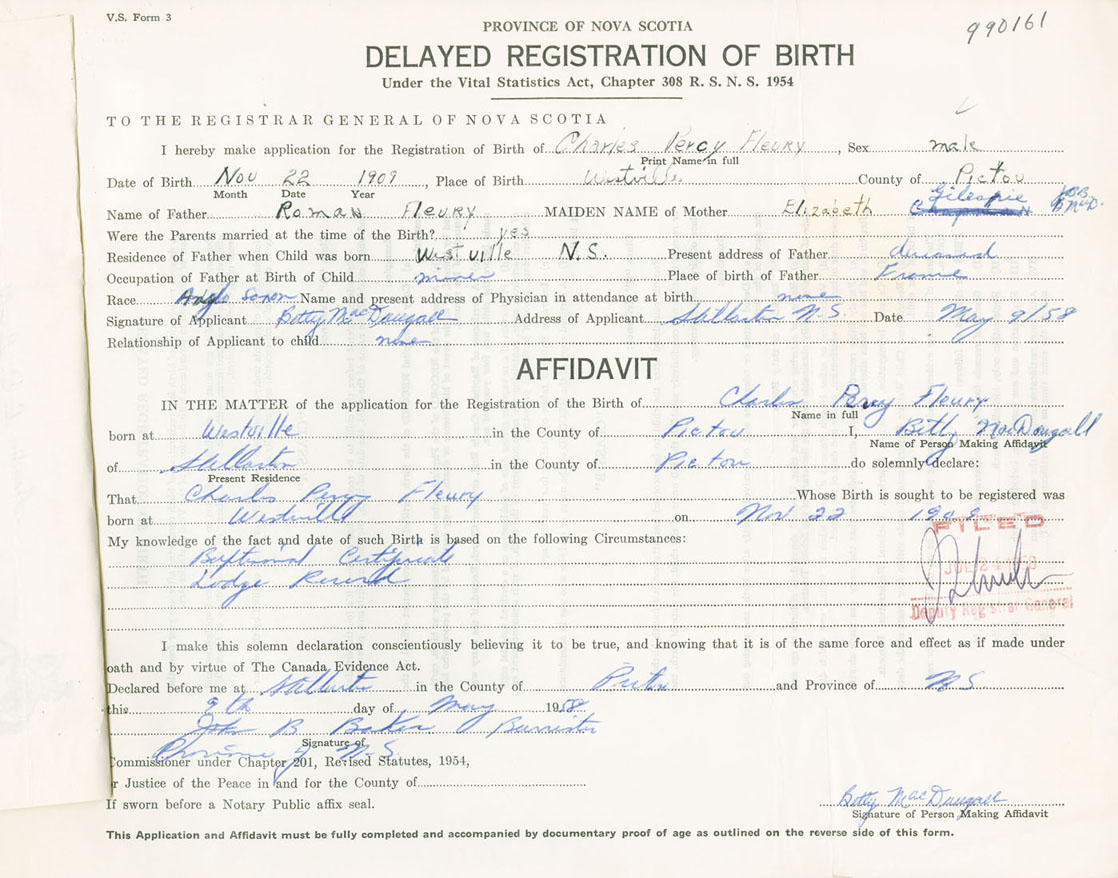 V.S. Form 3
PROVINCE OF NOVA SCOTIA
990161
DELAYED REGISTRATION OF BIRTH
Under the Vital Statistics Act, Chapter 308 R. S. N. S. 1954
TO THE REGISTRAR GENERAL OF NOVA SCOTIA
I hereby make application for the Registration of Birth of Charles Percy Fleury, Sex male
Print Name in full
Date of Birth Nov 22 1909, Place of Birth Westville County of Pictou
Month Date Year
Gilespie
Name of Father Roman Fleury MAIDEN NAME of Mother Elizabeth
Were the Parents married at the time of the Birth? yes
Residence of Father when Child was born Westville N.S. Present address of Father deceased
Occupation of Father at Birth of Child miner Place of birth of Father France
Race Anglo Saxon Name and present address of Physician in attendance at birth none
Signature of Applicant Betty MacDougall Address of Applicant Stellarton N.S. Date May 9/58
Relationship of Applicant to child none
AFFIDAVIT
IN THE MATTER of the application for the Registration of the Birth of Charles Percy Fleury
Name in full
born at Westville in the County of Pictou I, Betty MacDougall
Name of Person Making Affidavit
of Stellarton in the County of Pictou do solemnly declare:
Present Residence
That Charles Percy Fleury Whose Birth is sought to be registered was
born at Westville on Nov 22 1909
FILED
My knowledge of the fact and date of such Birth is based on the following Circumstances:
Baptismal Certificate
Lodge Record
Deputy Registrar General
I make this solemn declaration conscientiously believing it to be true, and knowing that it is of the same force and effect as if made under
oath and by virtue of The Canada Evidence Act.
Declared before me at Stellarton in the County of Pictou and Province of N S
this 9th day of May 1958
John B Baker Barrister
Signature of
N.S.
Commissioner under Chapter 201, Revised Statutes, 1954,
or Justice of the Peace in and for the County of
If sworn before a Notary Public affix seal.
Betty MacDougall
Signature of Person Making Affidavit
This Application and Affidavit must be fully completed and accompanied by documentary proof of age as outlined on the reverse side of this form.